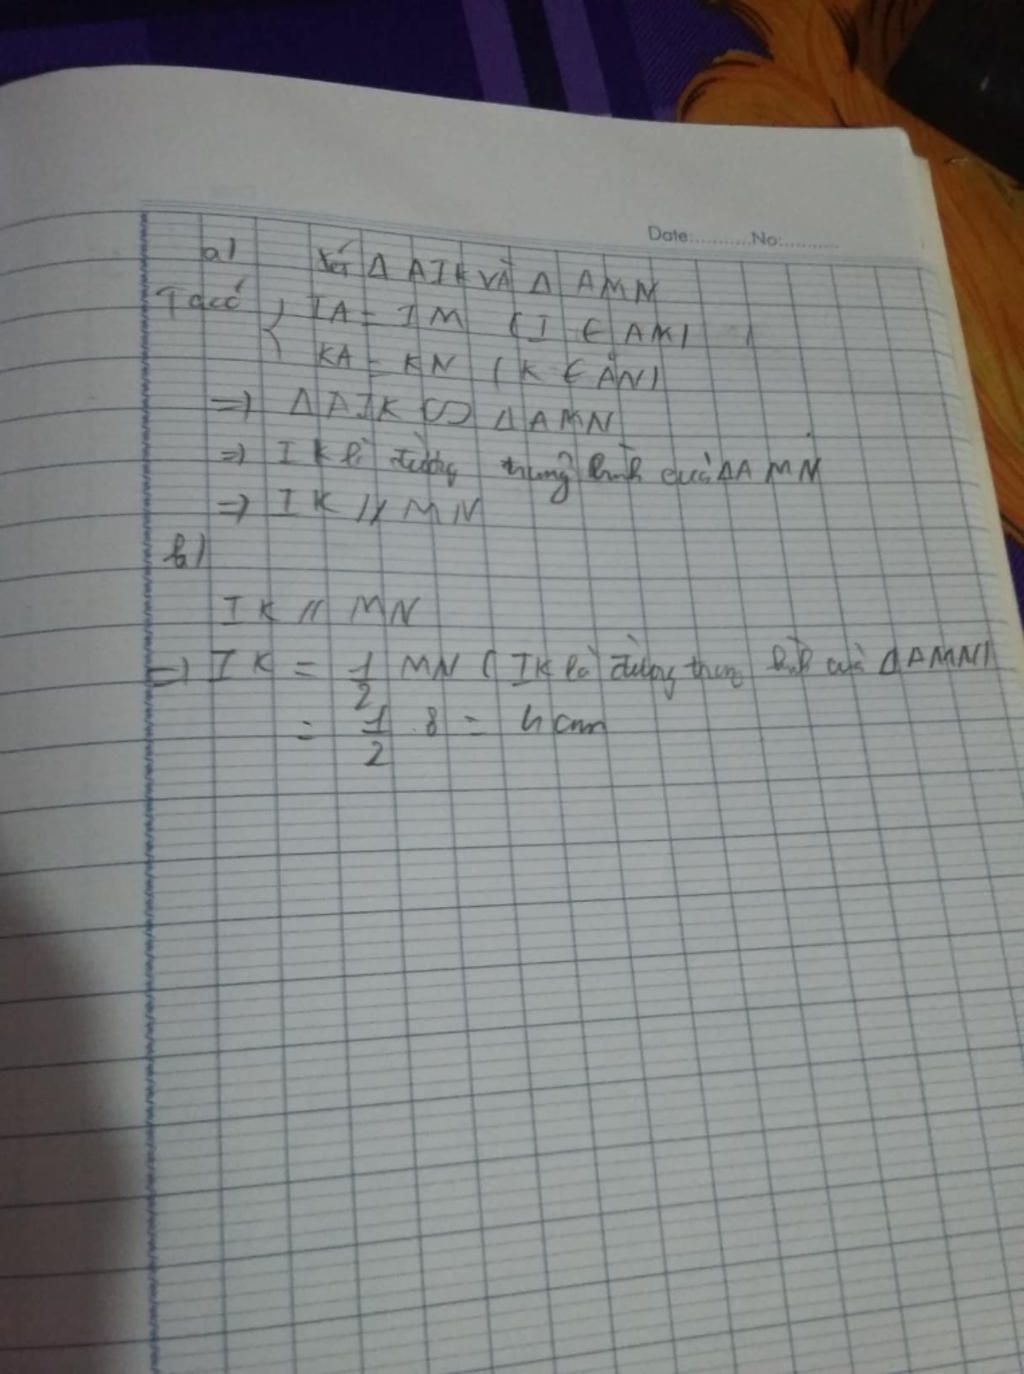 Date:..........No:..........
a) Xét Δ AIK và Δ AMN
Ta có { IA = IM ( I ∈ AM )
KA = KN ( K ∈ AN )
=> Δ AIK ∽ Δ AMN
=> IK là đường trung bình của Δ AMN
=> IK // MN
b)
IK // MN
=> IK = 1/2 MN ( IK là đường trung bình của Δ AMN )
= 1/2 . 8 = 4 cm